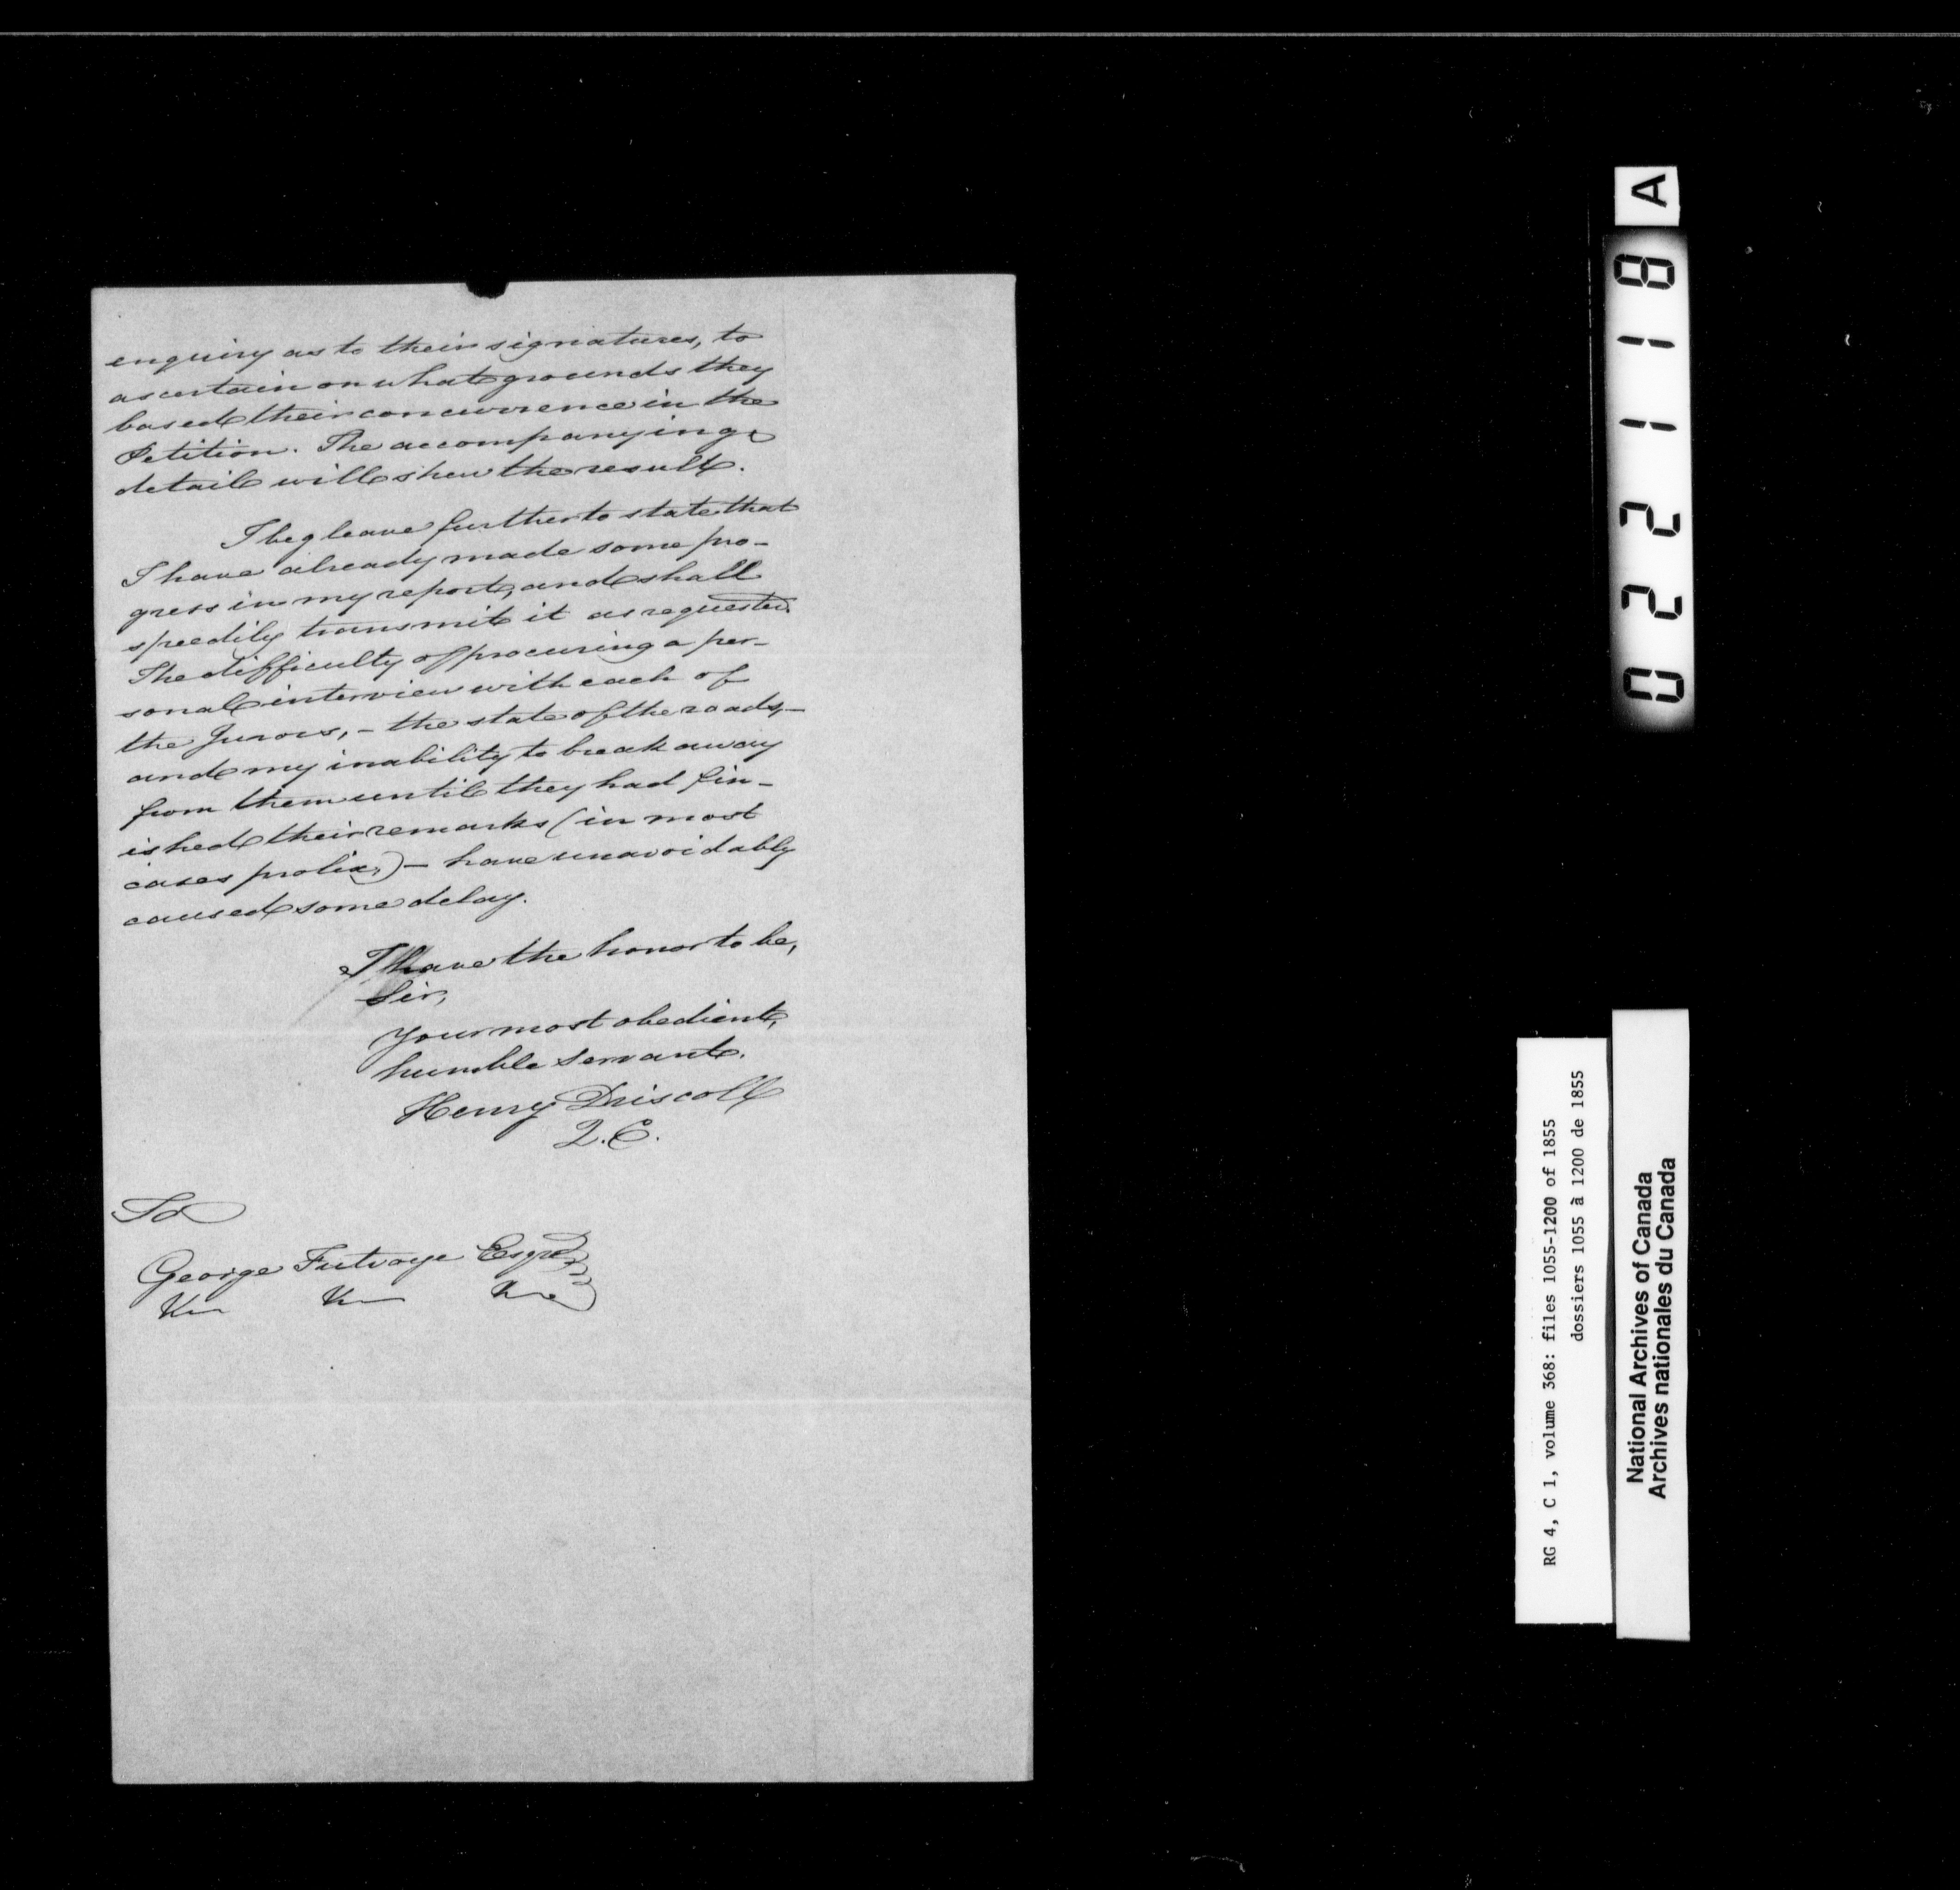 enquiry as to their signatures, to
ascertain on what grounds they
based their concurrence in the
Petition. The accompanying
detail will shew the result.
I beg leave further to state that
I have already made some pro-
gress in my report, and shall
speedily transmit it as requested.
The difficulty of procuring a per-
sonal interview with each of
the Jurors, - the state of the roads, -
and my inability to break away
from them until they had fin-
ished their remarks (in most
cases prolix,) - have unavoidably
caused some delay.
I have the honor to be,
Sir,
Your most obedient,
humble servant.
Henry Driscoll
Q.C.
To
George Futvoye Esqre
A
022118
RG 4, C 1, volume 368: files 1055-1200 of 1855
dossiers 1055 à 1200 de 1855
National Archives of Canada
Archives nationales du Canada